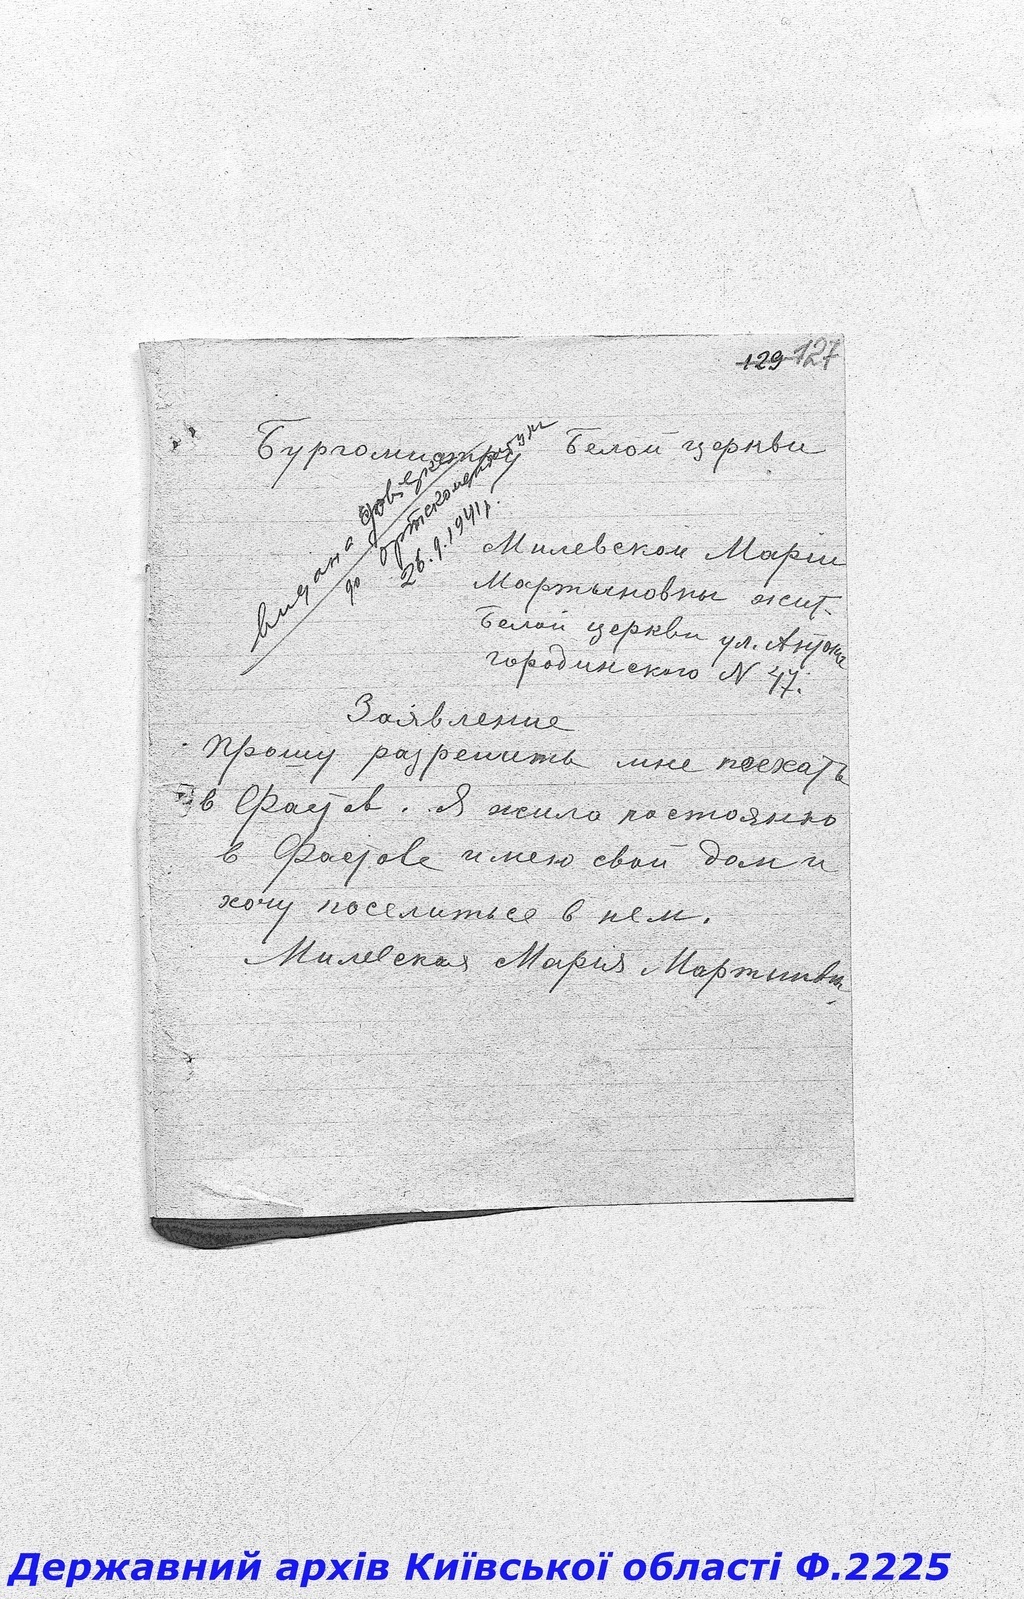 129 127
Бургомистру Белой церкви
видана довідка
до ортскомендатури
26.9.1941р.
Милевской Маріи
Мартыновны жит.
Белой церкви ул.
городинского N 47.
Заявление
Прошу разрешить мне поехать
в Фастов. Я жила постоянно
в Фастове имею свой дом и
хочу поселиться в нем.
Милевская Мария
Державний архів Київської області Ф.2225